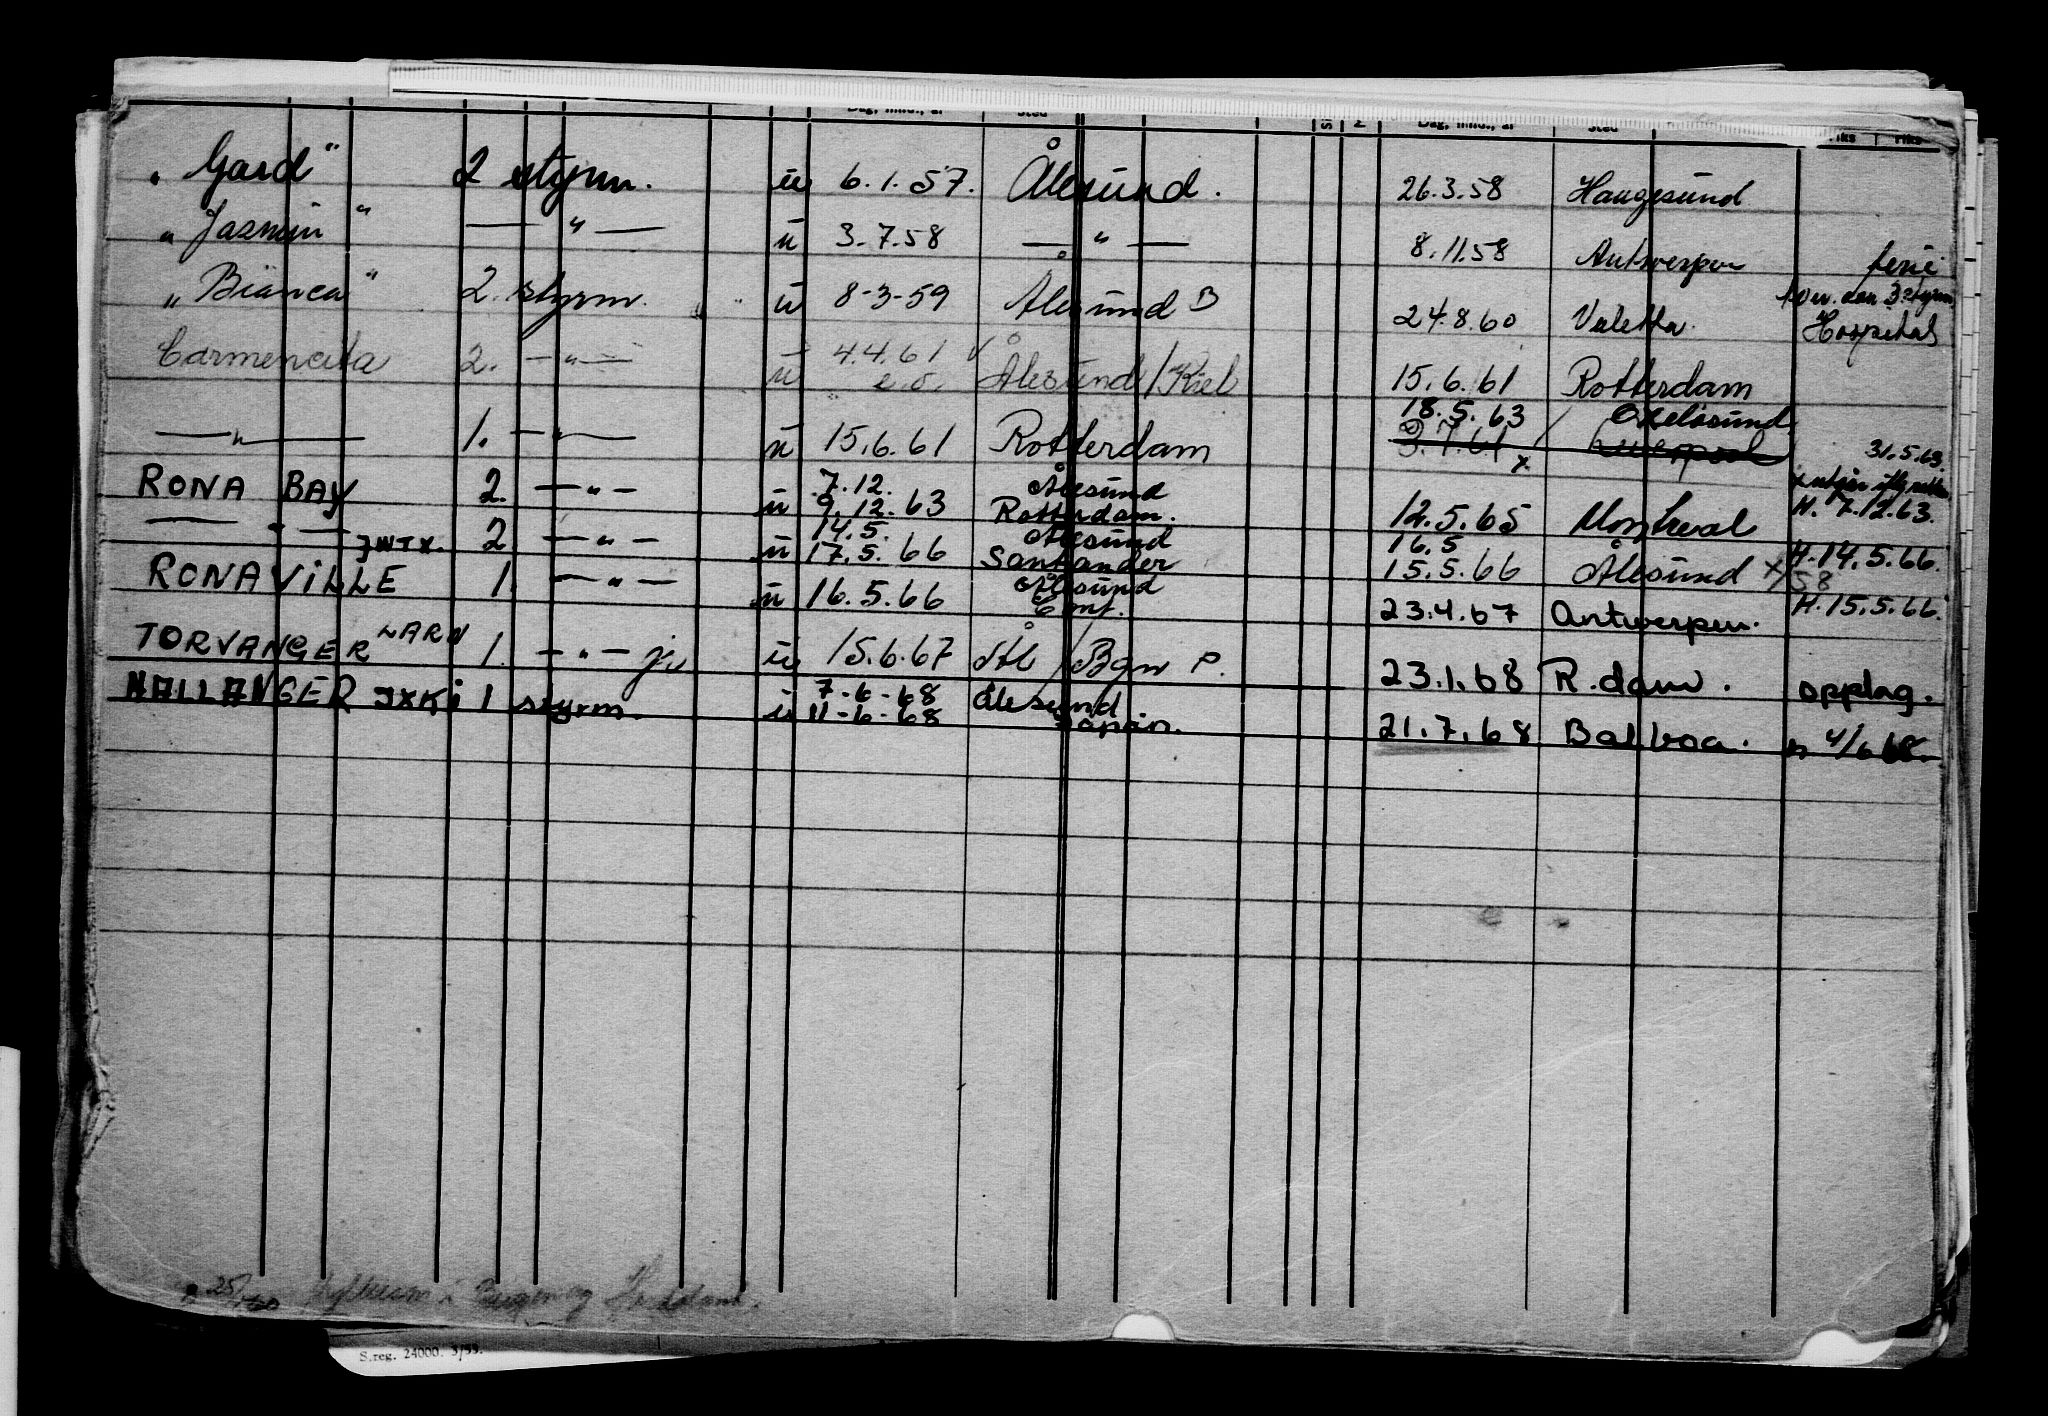 Dag, mnd., år Sted Dag, mnd., år Sted
„Gard" 2 styrm. u 6.1.57. Ålesund. 26.3.58 Haugesund
„Jasmin" — " — u 3.7.58 — " — 8.11.58 Antwerpen ferie
„Bianca" 2. styrm. u 8-3-59 Ålesund B 24.8.60 Valetta. Hospital
Carmencita 2. — " — u 4.4.61 e.o. Ålesund/Kiel 15.6.61 Rotterdam
— " — 1. — " — u 15.6.61 Rotterdam 18.5.63 Oxelösund 31.5.63.
3.7.61 x Liverpool
RONA BAY 2. — " — u 7.12. Ålesund
9.12.63 Rotterdam. 12.5.65 Montreal H. 7.12.63.
— " — 2 — " — u 14.5. Ålesund 16.5 H. 14.5.66.
JWTX. 17.5.66 Santander 15.5.66 Ålesund x/58
RONAVILLE 1. — " — u 16.5.66 Ålesund 23.4.67 Antwerpen. H. 15.5.66.
TORVANGER LARN 1. — " — jr u 15.6.67 Ål/Bgn P. 23.1.68 R.dam. opplag.
HALLANGER JXKI 1 styrm. u 7-6-68 Ålesund
11-6-68 Japan. 21.7.68 Balboa. 4/6 68.
25/
S.reg. 24000. 3/53.